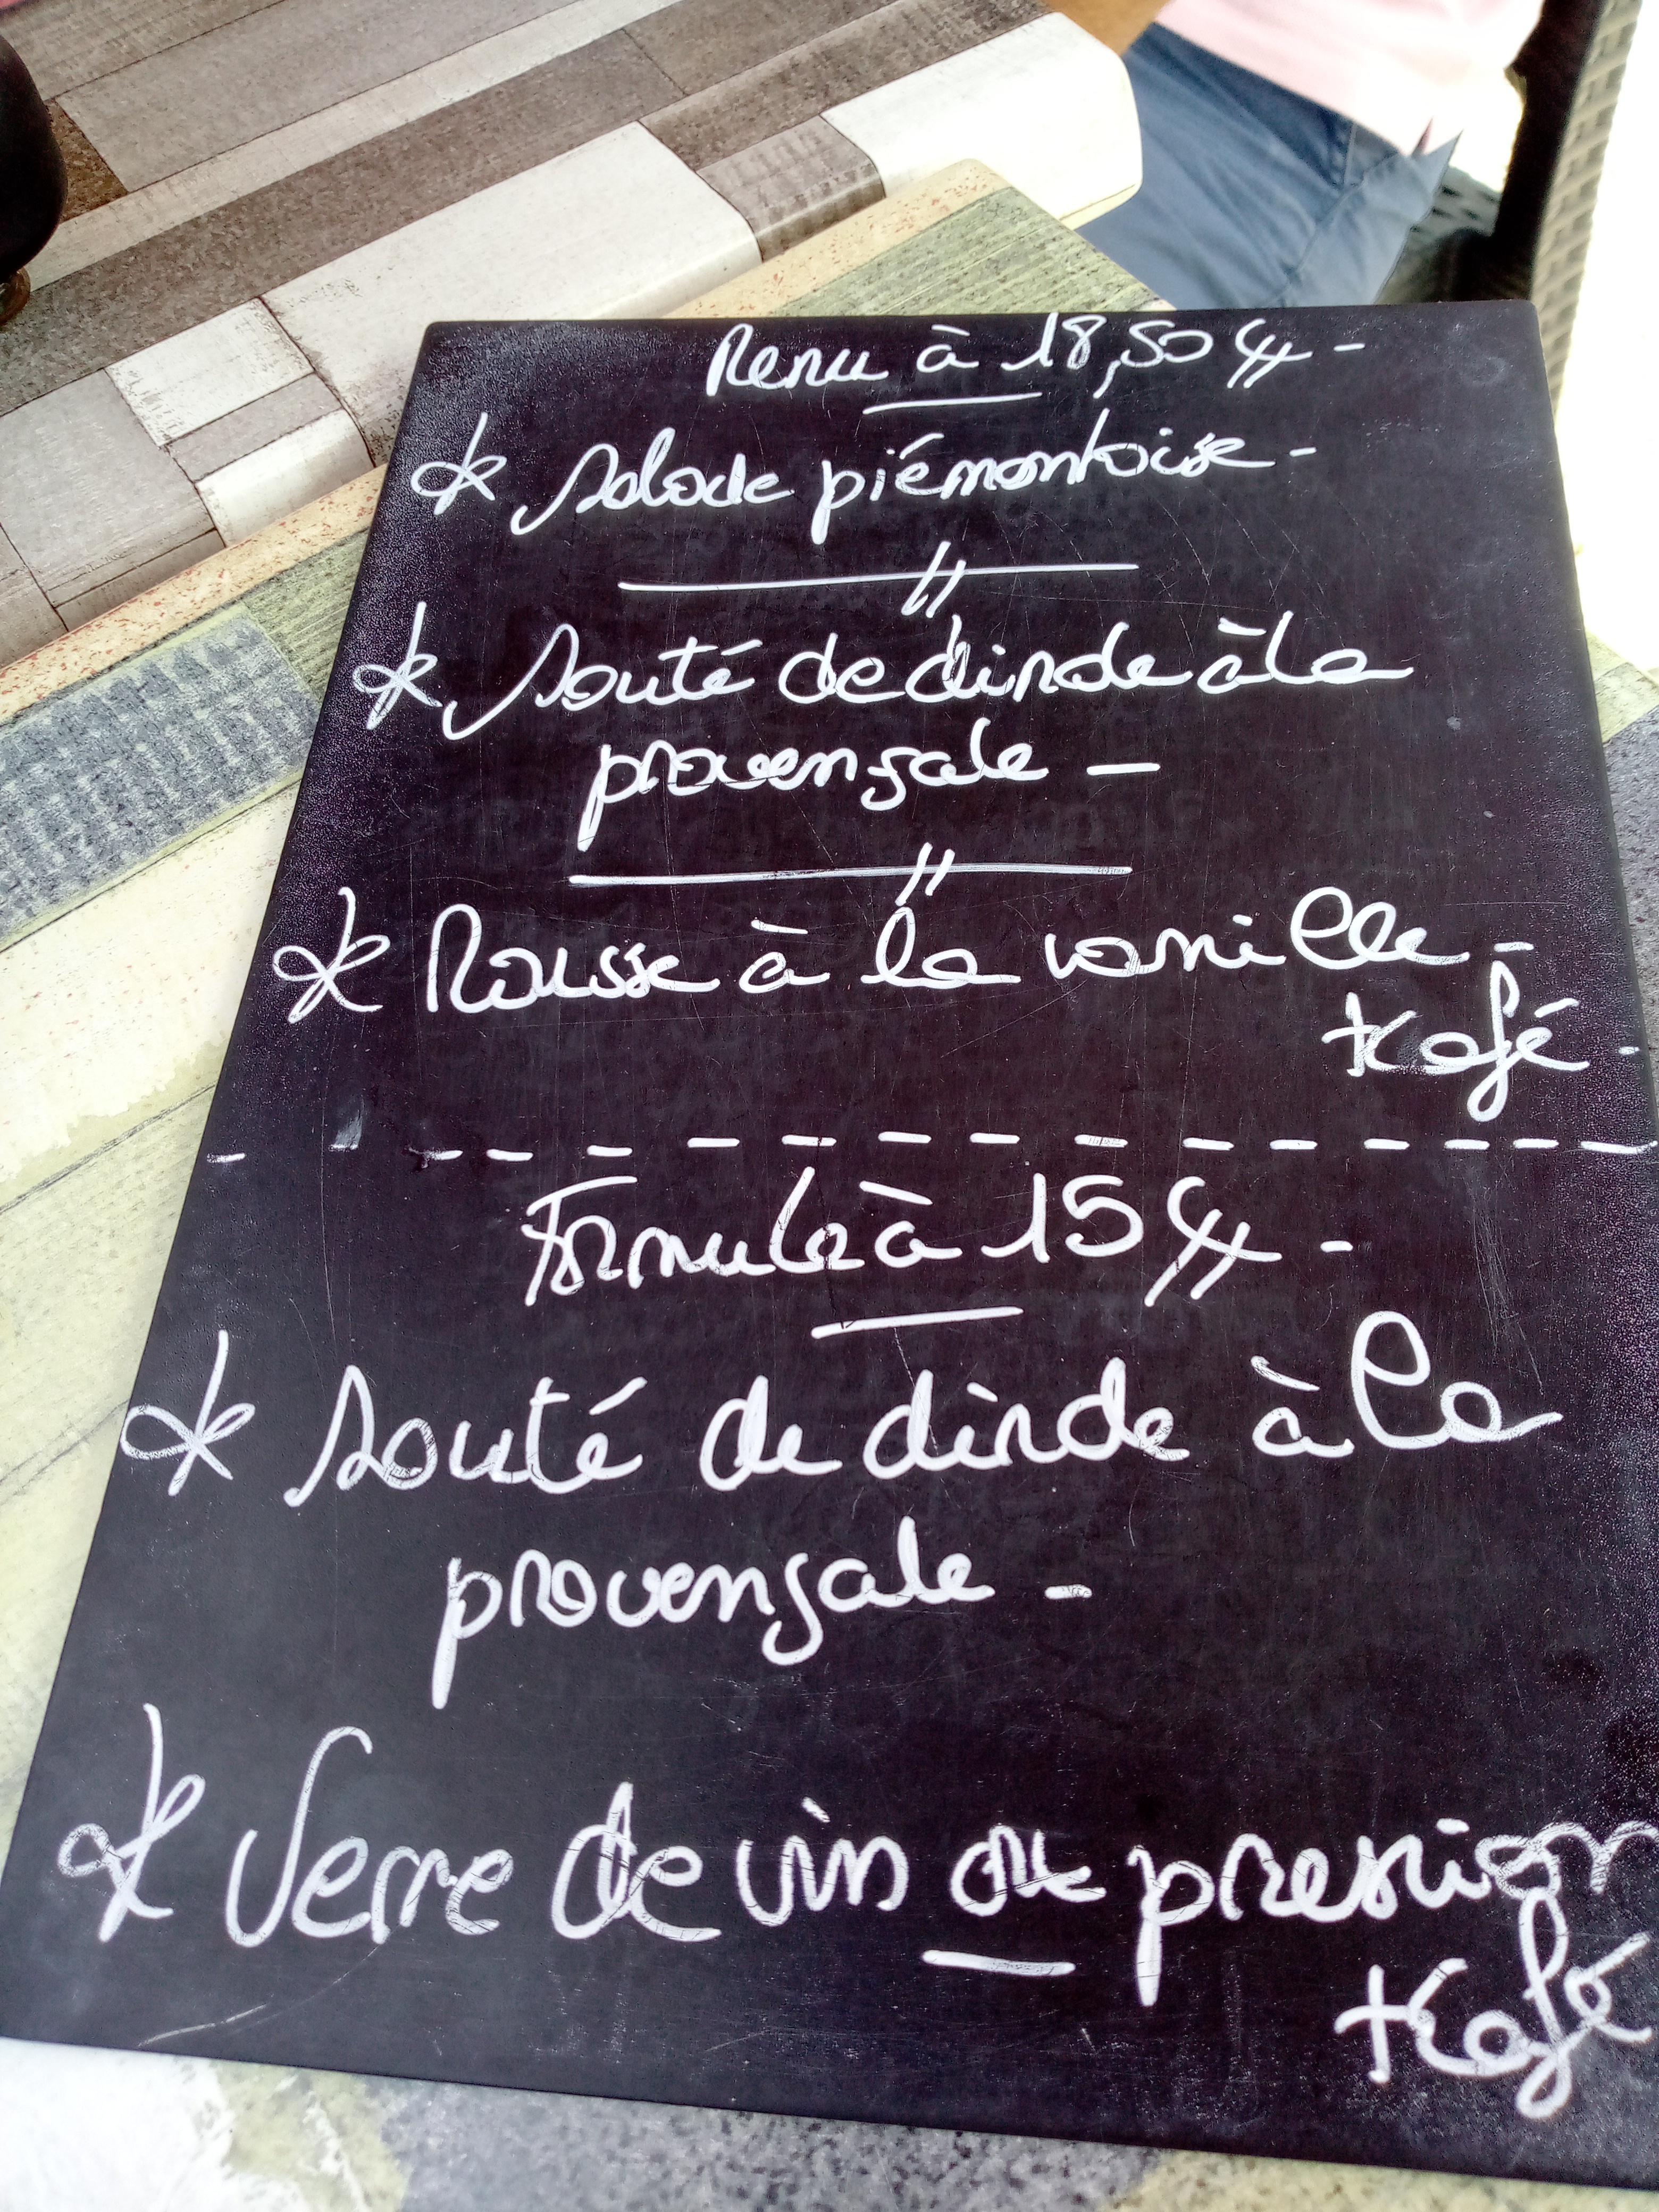 Menu à 18,50 € -
* Salade piémontoise -
* Sauté de dinde à la
provençale -
* Mousse à la vanille -
+ Kafé -
Formule à 15 € -
* Sauté de dinde à la
provençale -
* Verre de vin ou pression
+ Kafé